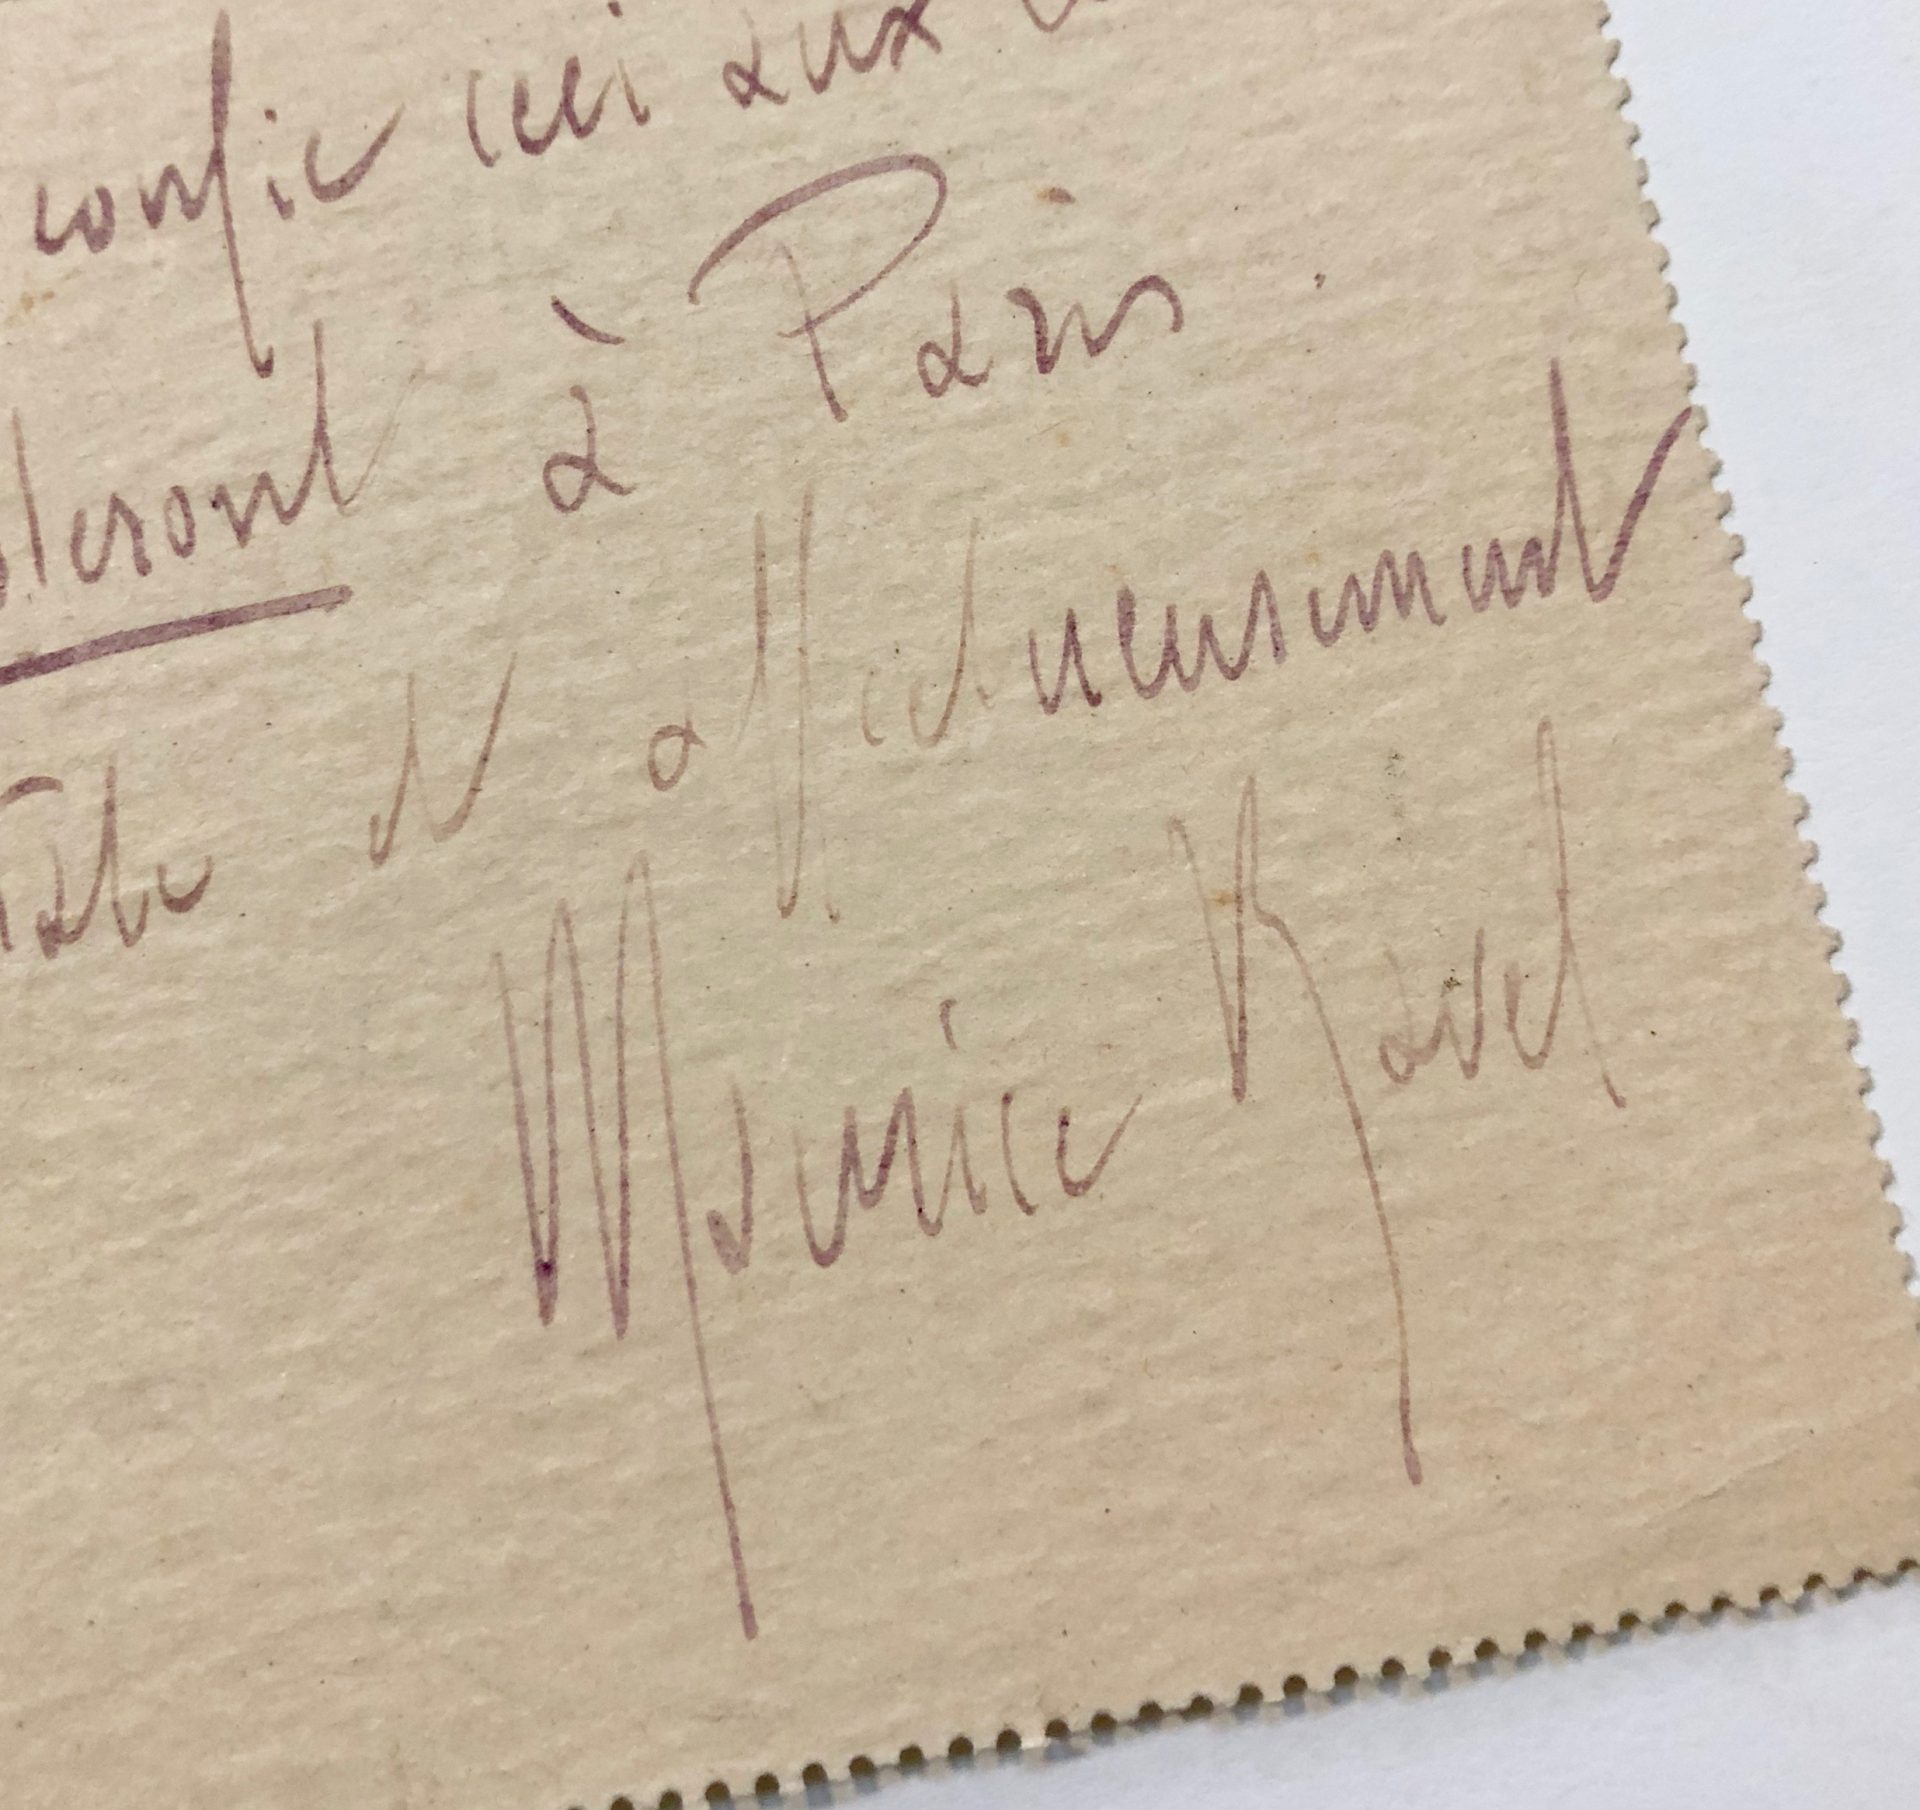 confie ceci aux
à Paris.
et affectueusement
Maurice Ravel